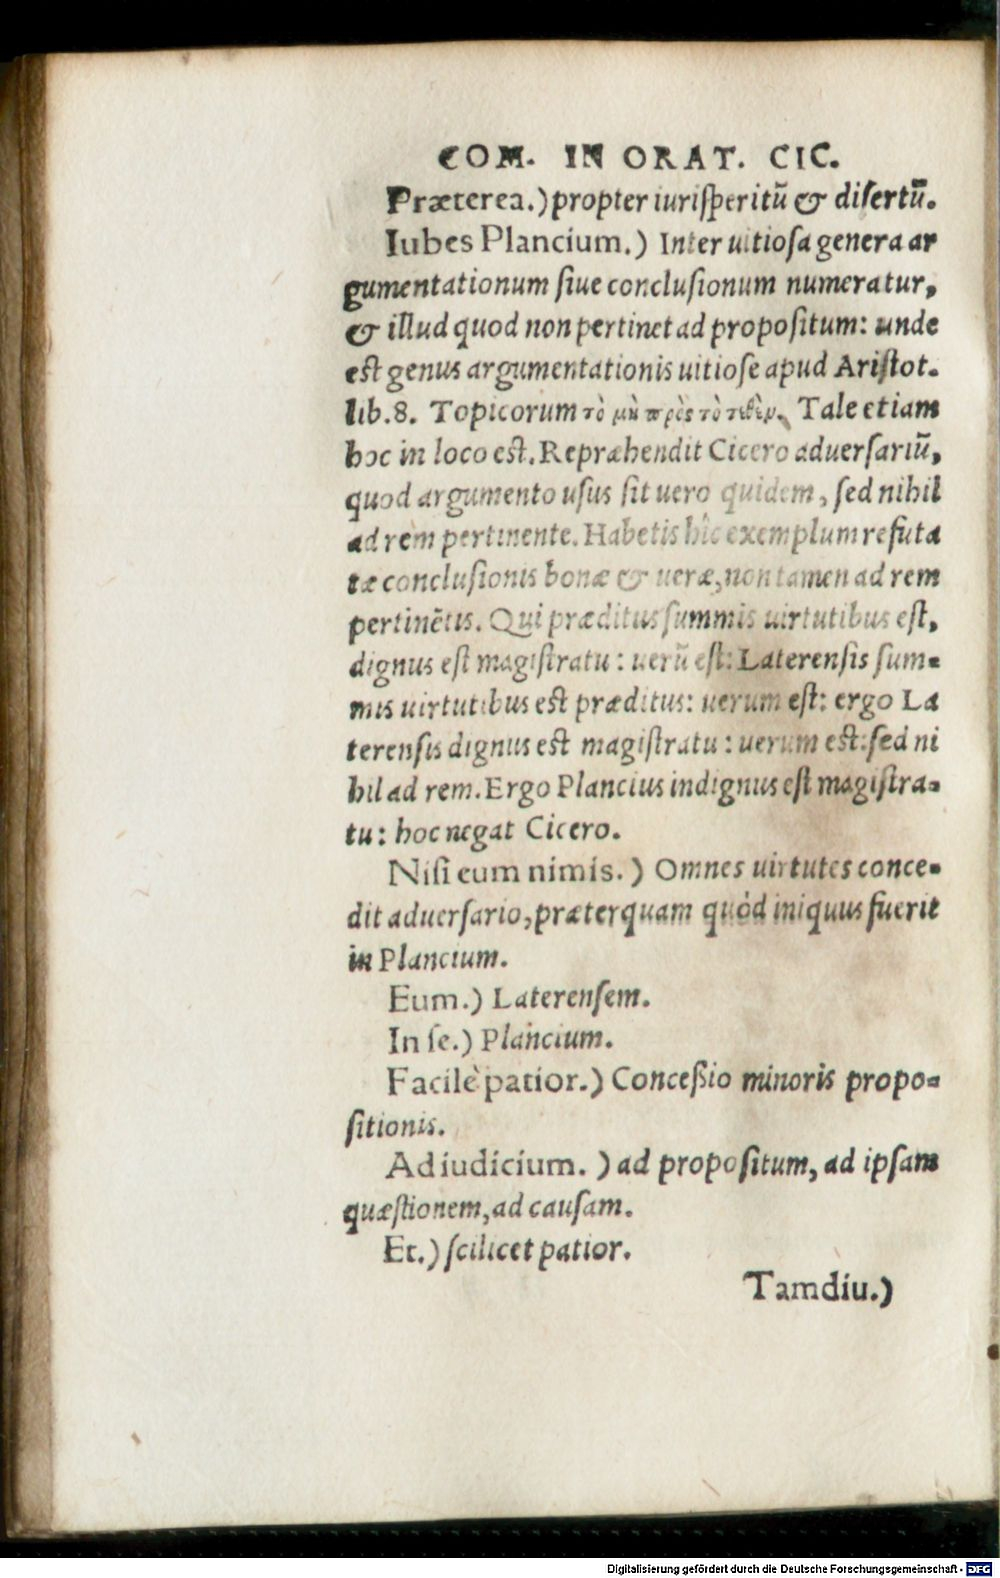 COM. IN ORAT. CIC.
Præterea.) propter iurisperitũ & disertũ.
Iubes Plancium.) Inter uitiosa genera ar
gumentationum siue conclusionum numeratur,
& illud quod non pertinet ad propositum: unde
est genus argumentationis uitiose apud Aristot.
lib.8. Topicorum τὸ μὴ πρὸς τὸ Tale etiam
hoc in loco est. Repræhendit Cicero aduersariũ,
quod argumento usus sit uero quidem, sed nihil
ad rem pertinente. Habetis hîc exemplum refuta
tæ conclusionis bonæ & ueræ, non tamen ad rem
pertinẽtis. Qui præditus summis uirtutibus est,
dignus est magistratu: uerũ est: Laterensis sum-
mis uirtutibus est præditus: uerum est: ergo La
terensis dignus est magistratu: uerum est: sed ni
hil ad rem. Ergo Plancius indignus est magistra-
tu: hoc negat Cicero.
Nisi eum nimis.) Omnes uirtutes conce-
dit aduersario, præterquam quòd iniquus fuerit
in Plancium.
Eum.) Laterensem.
In se.) Plancium.
Facilè patior.) Conceßio minoris propo-
sitionis.
Ad iudicium.) ad propositum, ad ipsam
quæstionem, ad causam.
Et.) scilicet patior.
Tamdiu.)
Digitalisierung gefördert durch die Deutsche Forschungsgemeinschaft - DFG